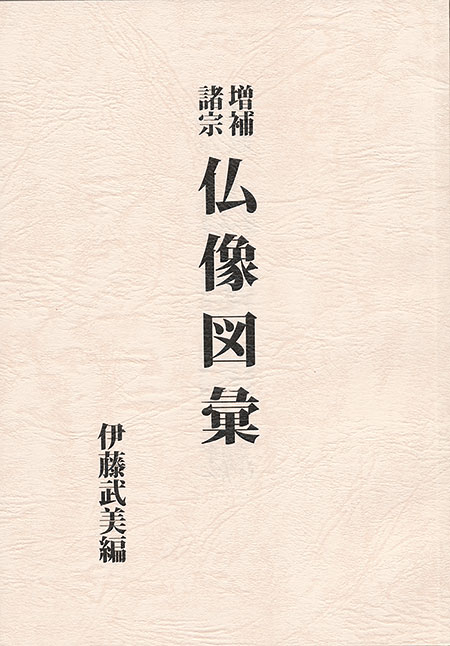 増補
諸宗
仏像図彙
伊藤武美編